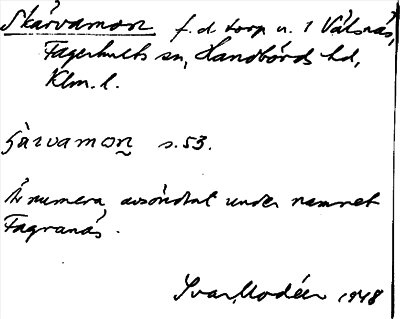 Skärvamon f. d. torp u. 1 Välsnäs,
Fagerhults sn, Handbörds hd,
Klm. l.
ʃärvamon s. 53.
Är numera avsöndrat under namnet
Fagranäs.
Ivar Modéer 1948